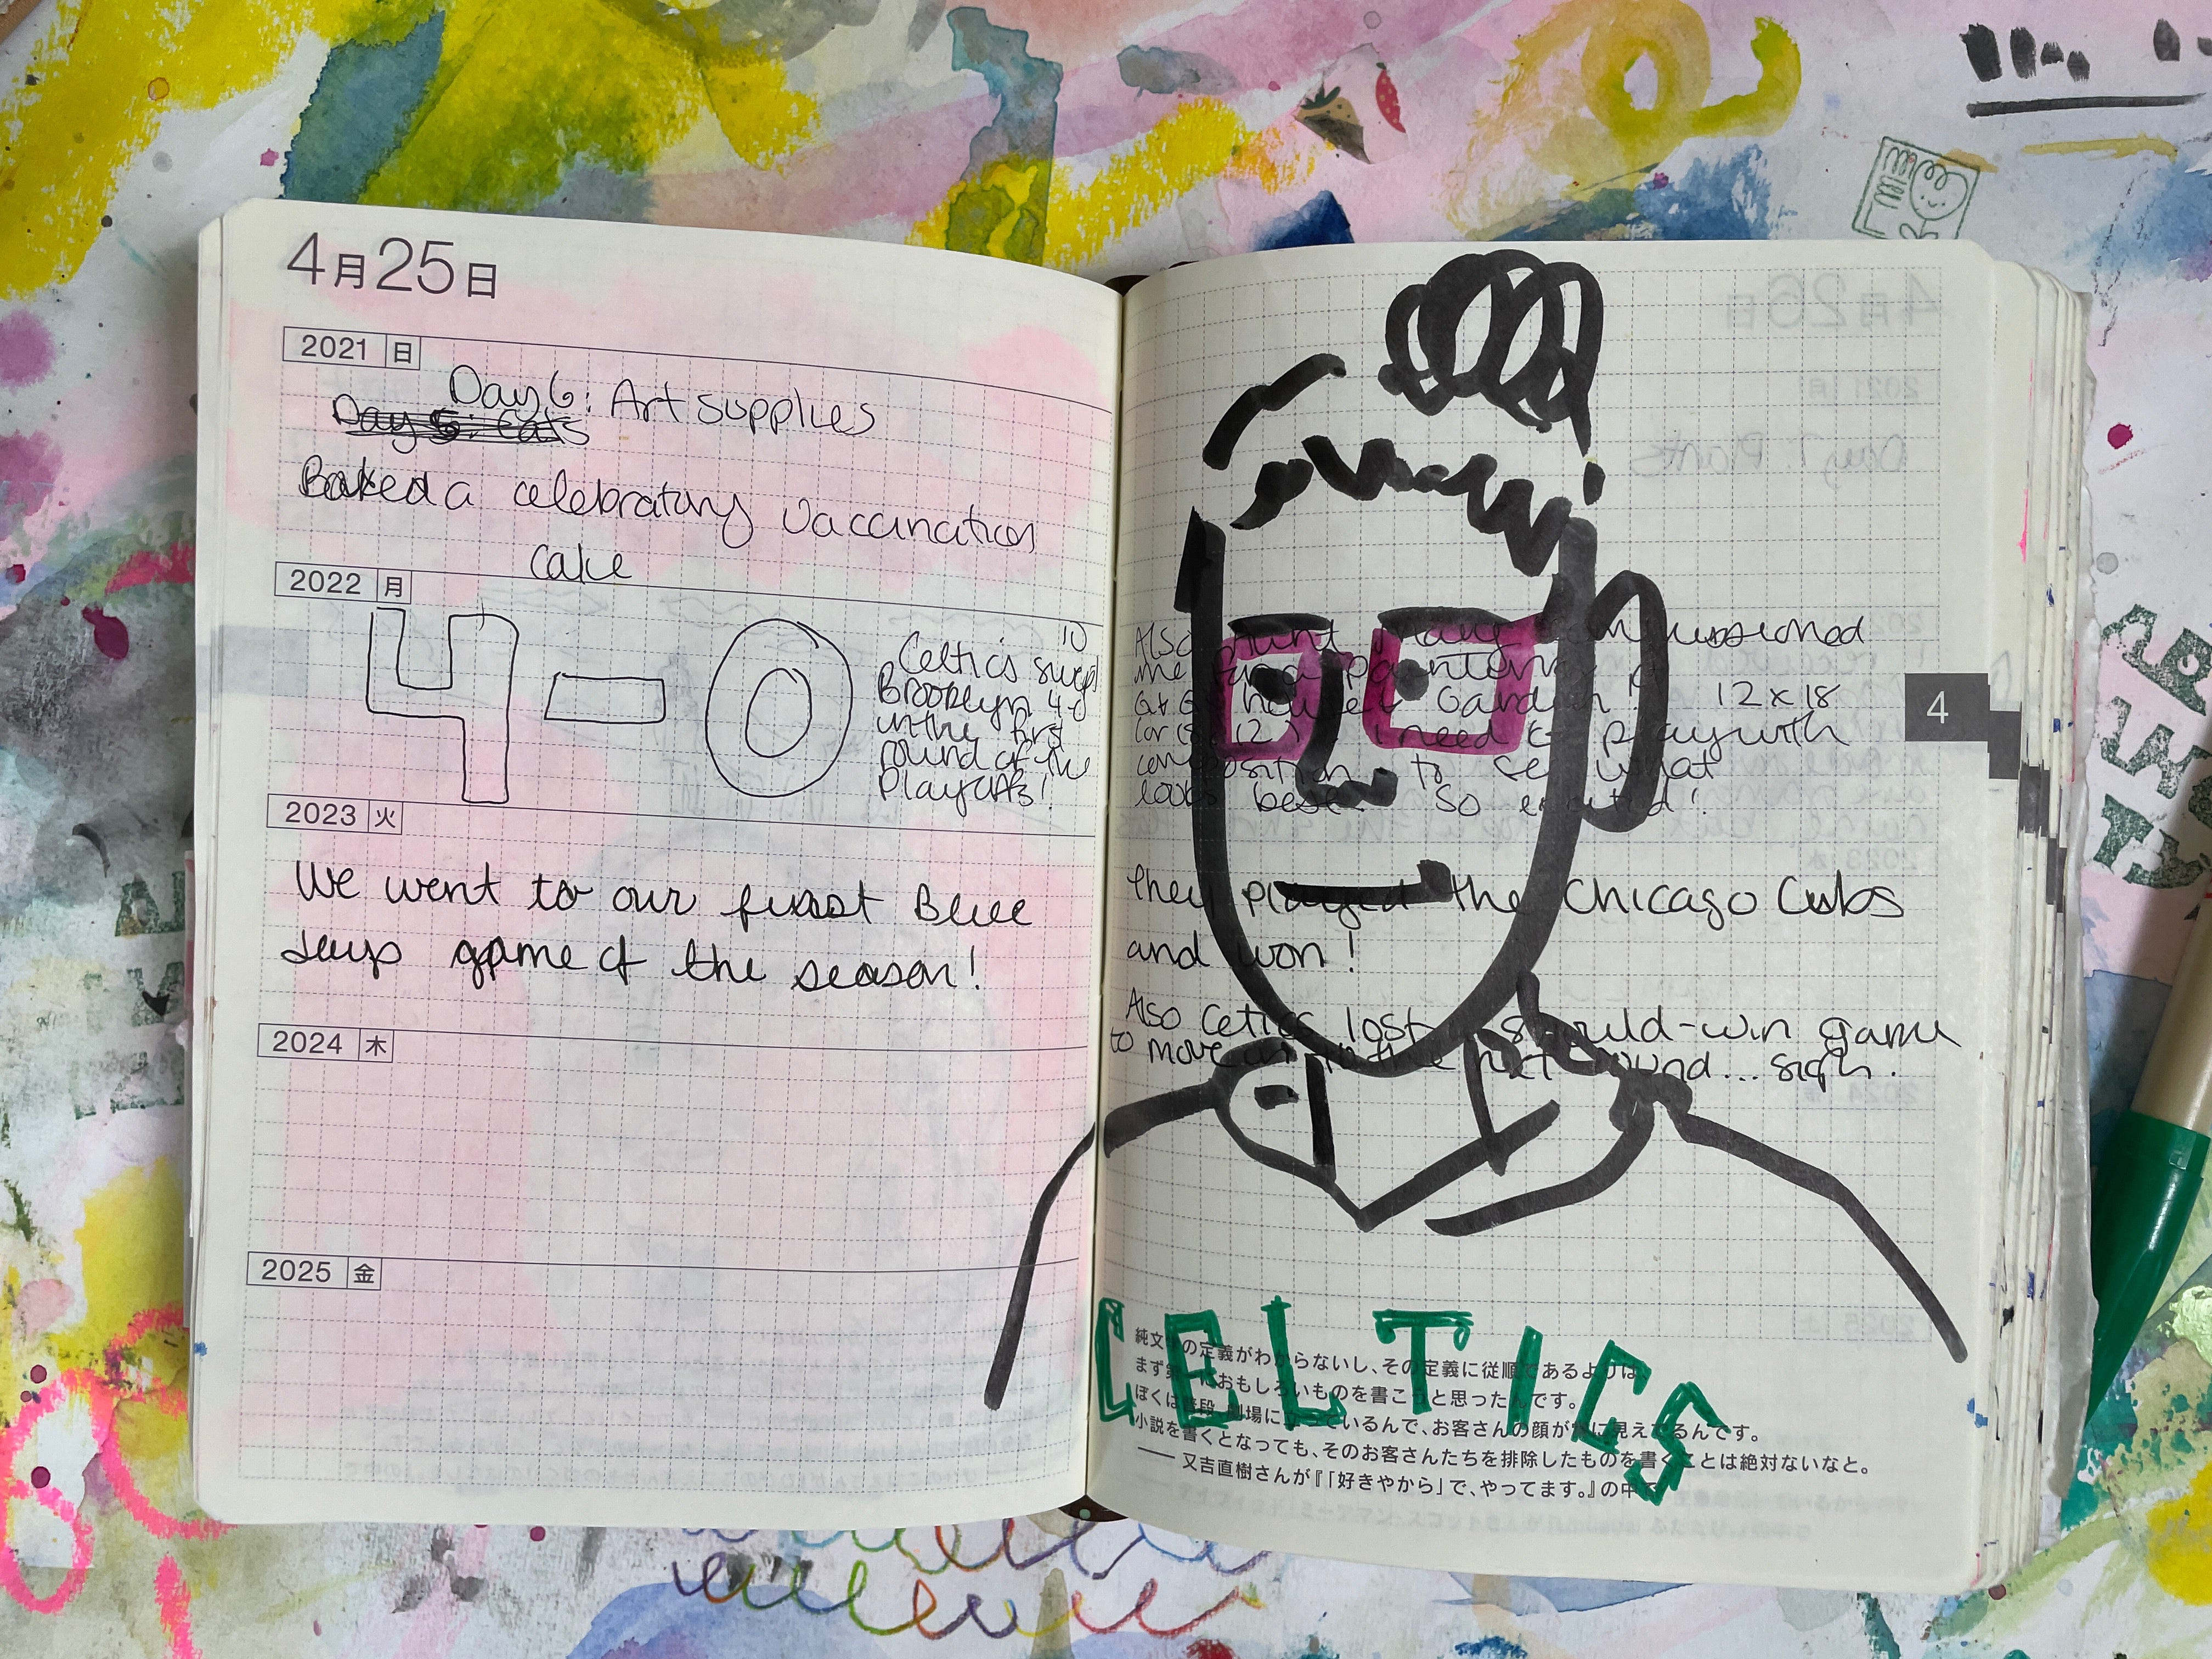 4月25日
2021 日
Day 6: Art supplies
Day 5: Cats
Baked a celebratory vaccination
cake
2022 月
4-0
Celtics swept
Brooklyn 4-0
in the first
round of the
playoffs!
2023 火
We went to our first Blue
Jays game of the season!
2024 木
2025 金
4月26日
Day 7: Plants
Also Aunt commissioned
me for a painting of
12 x 18
I need to play with
composition to see what
looks best. So excited!
4
they played the Chicago Cubs
and won!
Also Celtics lost a should-win game
to move on to the next round... sigh.
CELTICS
純文学の定義がわからないし、その定義に従順であるよりは、
まず第一におもしろいものを書こうと思ったんです。
ぼくは普段、劇場に立っているんで、お客さんの顔が常に見えてるんです。
小説を書くとなっても、そのお客さんたちを排除したものを書くことは絶対ないなと。
── 又吉直樹さんが『「好きやから」で、やってます。』の中で